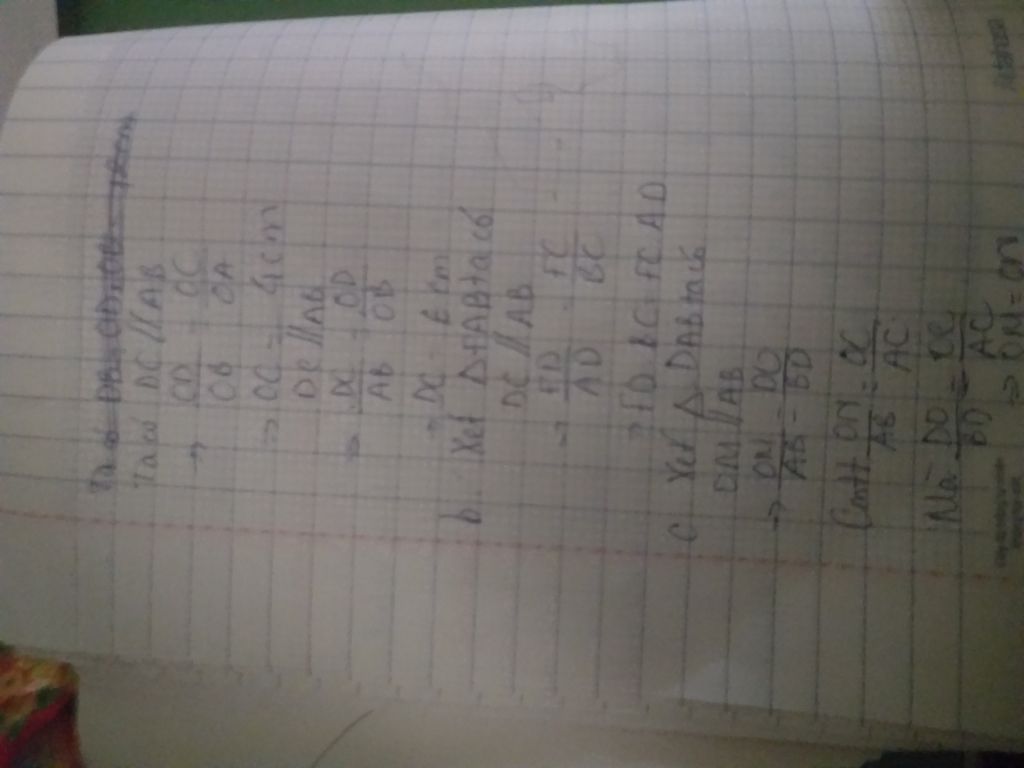 Ta có DC // AB
→ OD/OB = OC/OA
⇒ OC = 4cm
DC // AB
⇒ DC/AB = OD/OB
⇒ DC = 6 cm
b. Xét Δ FAB ta có
DC // AB
→ FD/AD = FC/BC
⇒ FD.BC = FC.AD
c Xét Δ DAB ta có
OM // AB
→ OM/AB = DO/BD
Cmtt ON/AB = OC/AC
Mà DO/BD = OC/AC
⇒ OM = ON